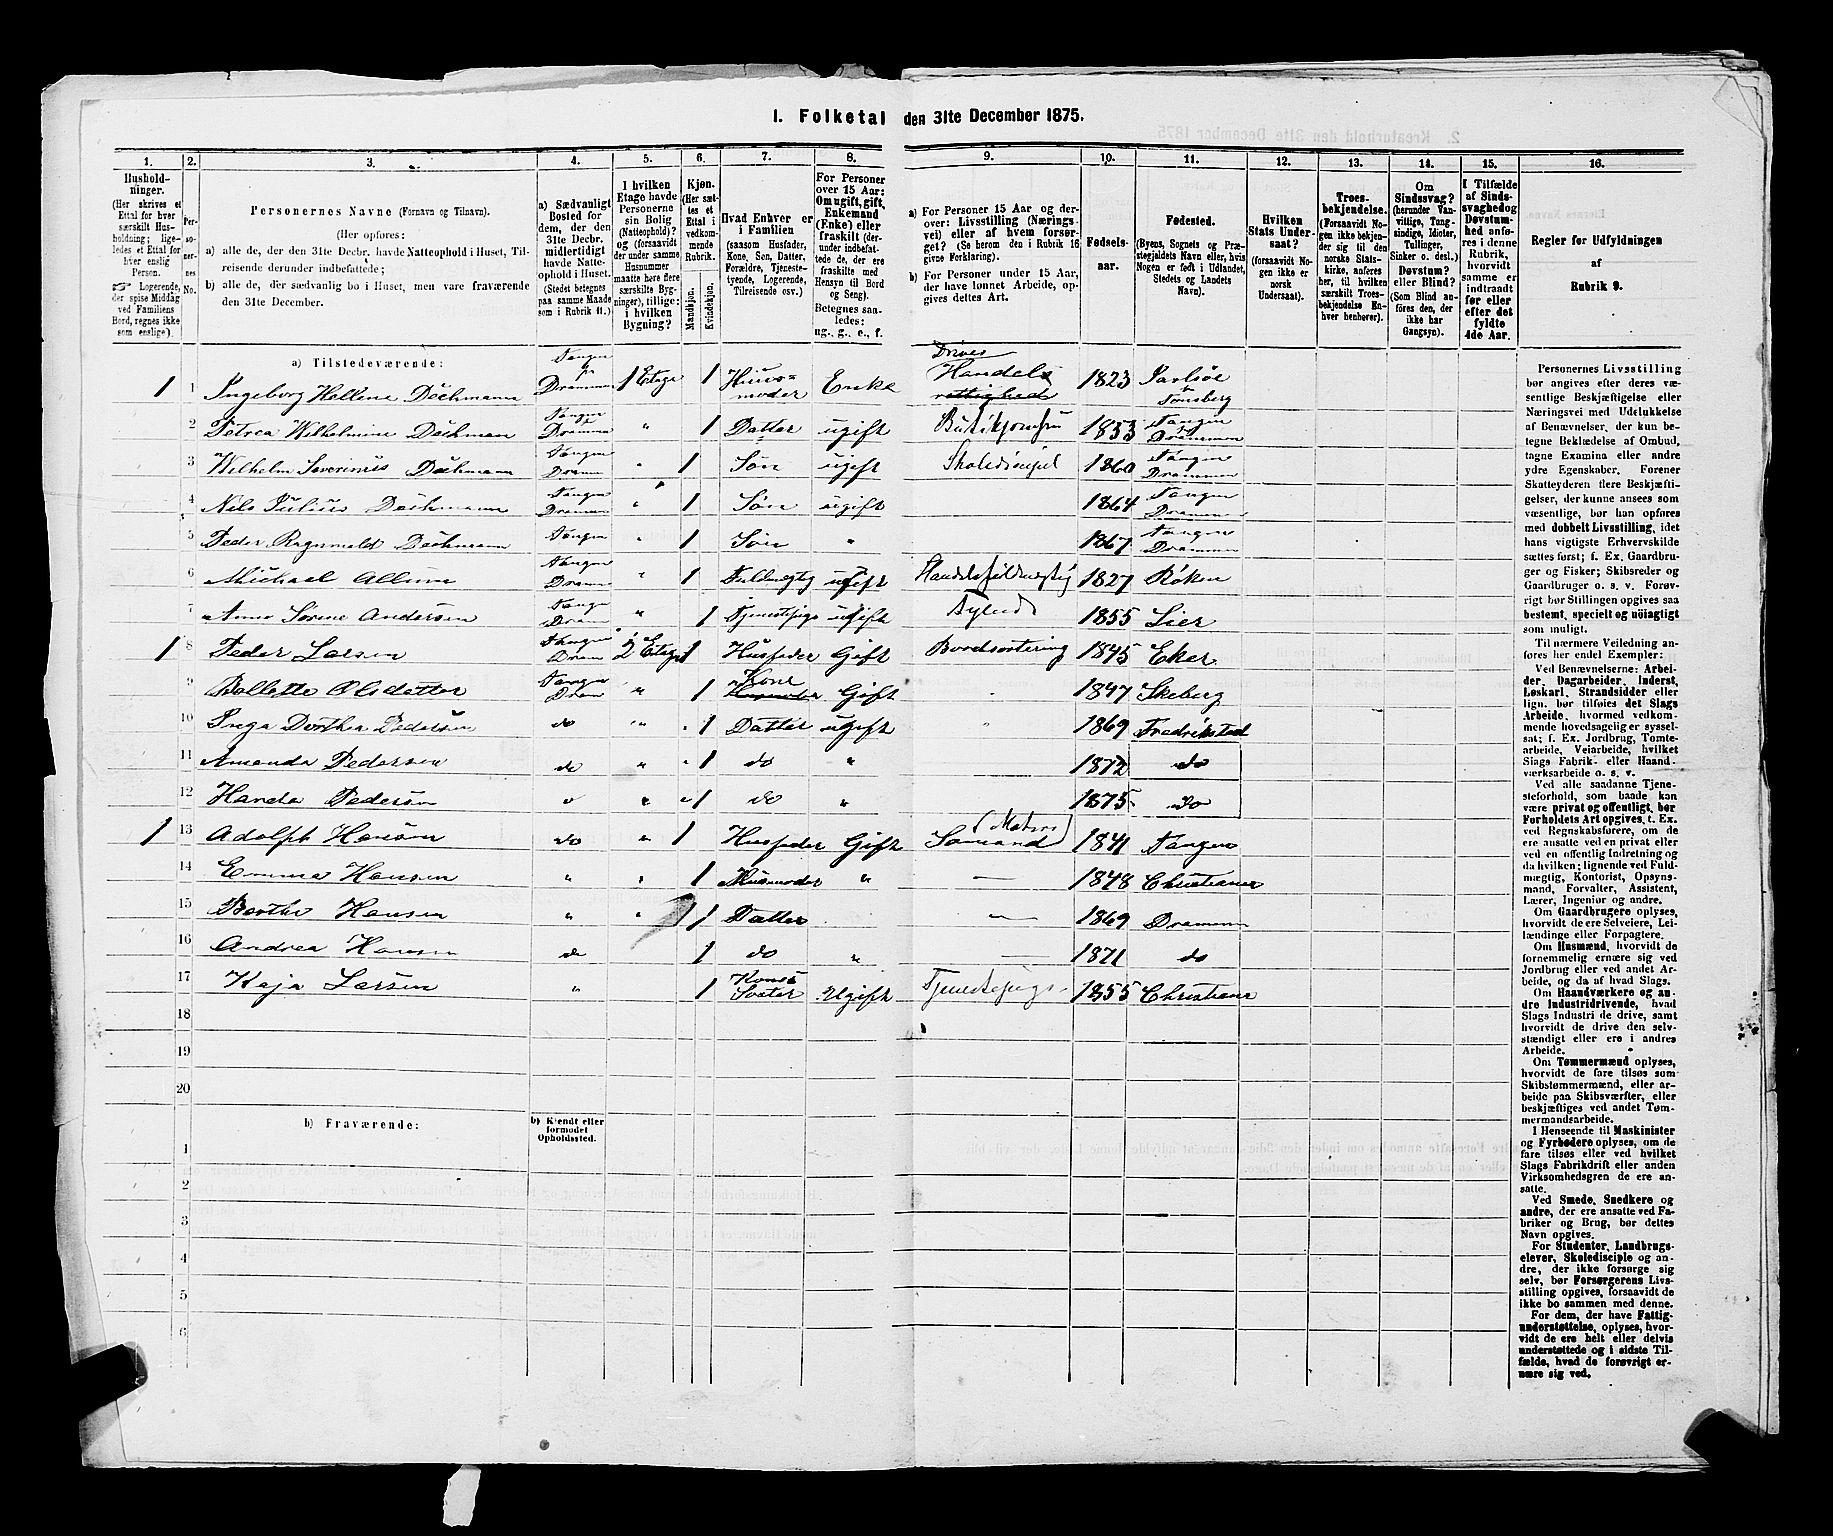 1. Folketal den 31te December 1875.
1.
2.
3.
4.
5.
6.
7.
8.
9.
10.
11.
12.
13.
14.
15.
16.
Hushold-
ninger.
(Her skrives et
Ettal for hver
særskilt Hus-
holdning; lige-
ledes et Ettal for
hver enslig
Person.
☞ Logerende,
der spise Middag
ved Familiens
Bord, regnes ikke
som enslige).
Per-
so-
ner-
nes
No.
Personernes Navne (Fornavn og Tilnavn).
(Her opføres:
a) alle de, der den 31te Decbr. havde Natteophold i Huset, Til-
reisende derunder indbefattede;
b) alle de, der sædvanlig bo i Huset, men vare fraværende
den 31te December.
a) Sædvanligt
Bosted for
dem, der den
31te Decbr.
midlertidigt
havde Natte-
ophold i Huset.
(Stedet betegnes
paa samme Maade
som i Rubrik 11.)
I hvilken
Etage havde
Personerne
sin Bolig
(Natteophold)?
og (forsaavidt
der under samme
Husnummer
maatte høre flere
særskilte Byg-
ninger), tillige:
i hvilken
Bygning?
Kjøn.
(Her sæt-
tes et
Ettal i
vedkom-
mende
Rubrik.
Mandkjøn.
Kvindekjøn.
Hvad Enhver er
i Familien
(saasom Husfader,
Kone, Søn, Datter,
Forældre, Tjeneste-
tyende, Logerende,
Tilreisende osv.)
For Personer
over 15 Aar:
Om ugift, gift,
Enkemand
(Enke) eller
fraskilt (der-
under indbefat-
tede de, der ere
fraskilte med
Hensyn til Bord
og Seng).
Betegnes saa-
ledes:
ug., g., e., f.
a) For Personer 15 Aar og der-
over: Livsstilling (Nærings-
vei) eller af hvem forsør-
get? (Se herom den i Rubrik 16
givne Forklaring).
b) For Personer under 15 Aar,
der have lønnet Arbeide, op-
gives dettes Art.
Fødsels-
aar.
Fødested.
(Byens, Sognets og Præ-
stegjældets Navn eller, hvis
Nogen er født i Udlandet,
Stedets og Landets
Navn).
Hvilken
Stats Under-
saat?
(forsaavidt No-
gen ikke er
norsk
Undersaat).
Troes-
bekjendelse.
(Forsaavidt No-
gen ikke bekjen-
der sig til den
norske Stats-
kirke, anføres
her, til hvilken
særskilt Troes-
bekjendelse En-
hver henhører).
Om
Sindssvag?
(herunder Van-
vittige, Tung-
sindige, Idioter,
Tullinger,
Sinker o. desl.)
Døvstum?
eller Blind?
(Som Blind an-
føres den, der
ikke har
Gangsyn).
I Tilfælde
af Sinds-
svaghed og
Døvstum-
hed anfø-
res i denne
Rubrik,
hvorvidt
samme er
indtraadt
før eller
efter det
fyldte
4de Aar.
Regler for Udfyldningen
af
Rubrik 9.
a) Tilstedeværende:
1 1 Ingeborg Hellene Dechmann Tangen p Drammen 1 Etage 1 Huusmoder Enke Drives Handels 1823 Tønsberg
2 Petrea Wilhelmine Dechman Tangen Drammen " 1 Datter ugift 1853 Tangen Drammen
3 Wilhelm Severinus Dechmann Tangen Dramm " 1 Søn ugift Skoledisipel 1860 Tangen Drammen
4 Nils Julius Dechmann Tangen Drammen " 1 Søn ugift 1864 Tangen Drammen
5 Peder Ragnvald Dechmann Tangen " 1 Søn " 1867 Tangen Drammen
6 Michael Allum Tangen Dramm " 1 Fuldmegtig ugift Handelsfuldmegtig 1827 Røken
7 Anne Sørine Andersen Tangen Dram " 1 Tjenestepige ugift 1855 Lier
1 8 Peder Larsen Tangen Dram 2 Etage 1 Husfader Gift Bordsortering 1845 Eker
9 Bollette Olsdatter Tangen Dram " 1 Kone Gift 1847 Skeberg
10 Inga Dorthea Pedersen do " 1 Datter ugift " 1869 Fredrikstad
11 Amanda Pedersen do " 1 do " 1872 do
12 Handa Pedersen " 1 do " 1875 do
1 13 Adolph Hansen do " 1 Husfader Gift Sømand (Matros) 1841 Tangen
14 Emma Hansen " " 1 Husmoder " — 1848 Christiania
15 Berthe Hansen " " 1 1 Datter — 1869 Drammen
16 Andrea Hansen do 1 do " 1871 do
17 Kaja Larsen " 1 Kones Søster Ugift Tjenestepige 1855 Christiania
18
19
20
b) Fraværende:
b) Kjendt eller
formodet
Opholdssted.
1
2
3
4
5
6
Personernes Livsstilling
bør angives efter deres væ-
sentlige Beskjæftigelse eller
Næringsvei med Udelukkelse
af Benævnelser, der kun be-
tegne Beklædelse af Ombud,
tagne Examina eller andre
ydre Egenskaber. Forener
Skatteyderen flere Beskjæfti-
gelser, der kunne ansees som
væsentlige, bør han opføres
med dobbelt Livsstilling, idet
hans vigtigste Erhvervskilde
sættes først; f. Ex. Gaardbru-
ger og Fisker; Skibsreder og
Gaardbruger o. s. v. Forøv-
rigt bør Stillingen opgives saa
bestemt, specielt og nøiagtigt
som muligt.
Til nærmere Veiledning an-
føres her endel Exempler:
Ved Benævnelserne: Arbei-
der, Dagarbeider, Inderst,
Løskarl, Strandsidder eller
lign. bør tilføies det Slags
Arbeide, hvormed vedkom-
mende hovedsagelig er syssel-
sat; f. Ex. Jordbrug, Tomte-
arbeide, Veiarbeide, hvilket
Slags Fabrik- eller Haand-
værksarbeide o. s. v.
Ved alle saadanne Tjene-
steforhold, som baade kan
være privat og offentligt, bør
Forholdets Art opgives, t. Ex.
ved Regnskabsførere, om de
ere ansatte ved en privat eller
ved en offentlig Indretning og
da hvilken; lignende ved Fuld-
mægtig, Kontorist, Opsyns-
mand, Forvalter, Assistent,
Lærer, Ingeniør og andre.
Om Gaardbrugere oplyses,
hvorvidt de ere Selveiere, Lei-
lændinge eller Forpagtere.
Om Husmænd, hvorvidt de
fornemmelig ernære sig ved
Jordbrug eller ved andet Ar-
beide, og da af hvad Slags.
Om Haandværkere og an-
dre Industridrivende, hvad
Slags Industri de drive, samt
hvorvidt de drive den selv-
stændigt eller ere i andres
Arbeide.
Om Tømmermænd oplyses,
hvorvidt de fare tilsøs som
Skibstømmermænd, eller ar-
beide paa Skibsværfter, eller
beskjæftiges ved andet Tøm-
mermandsarbeide.
I Henseende til Maskinister
og Fyrbødere oplyses, om de
fare tilsøs eller ved hvilket
Slags Fabrikdrift eller anden
Virksomhedsgren de ere an-
satte.
Ved Smede, Snedkere og
andre, der ere ansatte ved Fa-
briker og Brug, bør dettes
Navn opgives.
For Studenter, Landbrugs-
elever, Skoledisciple og an-
dre, der ikke forsørge sig
selv, bør Forsørgerens Livs-
stilling opgives, forsaavidt de
ikke bo sammen med denne.
For dem, der have Fattig-
understøttelse, oplyses, hvor-
vidt de ere helt eller delvis
understøttede og i sidste Til-
fælde, hvad de forøvrigt er-
nære sig ved.